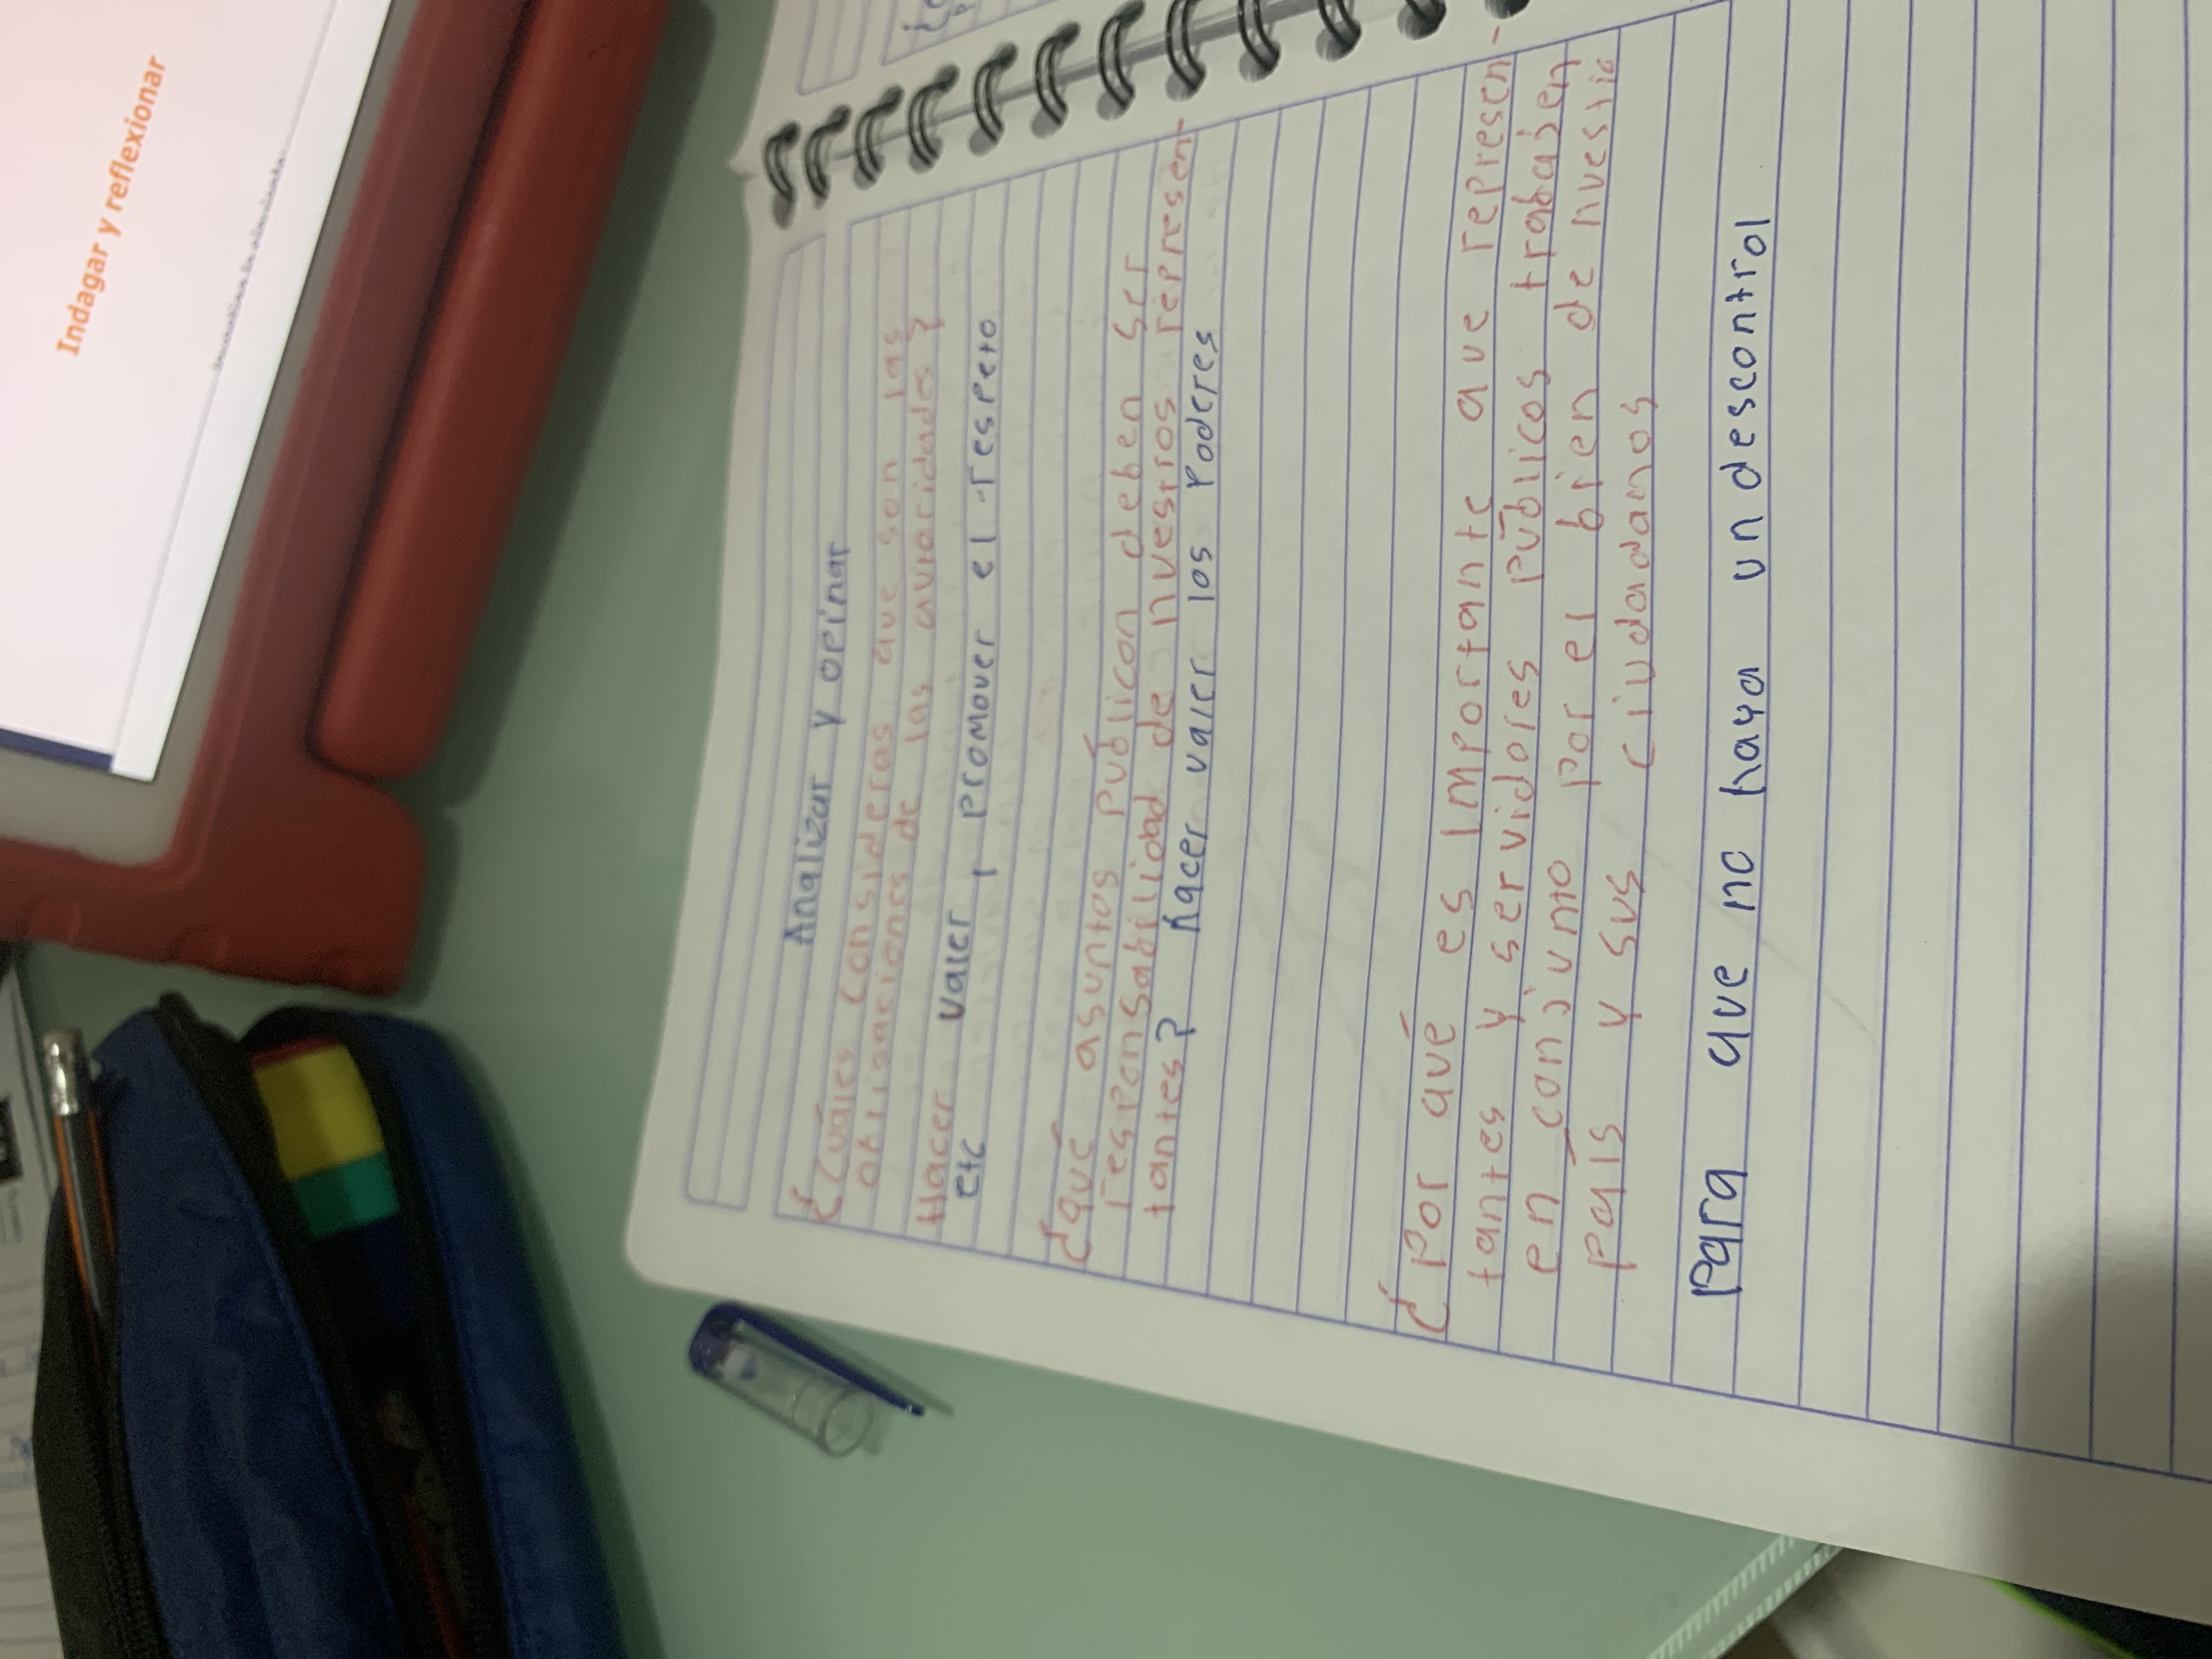 Indagar y reflexionar
Analizar y opinar
¿Cuáles consideras que son las
obligaciones de las autoridades?
Hacer valer, promover el respeto
etc
¿qué asuntos públicon deben ser
responsabilidad de nuestros represen-
tantes? hacer valer los poderes
¿Por qué es importante que represen-
tantes y servidores públicos trabajen
en conjunto por el bien de nuestro
país y sus ciudadanos
Para que no haya un descontrol